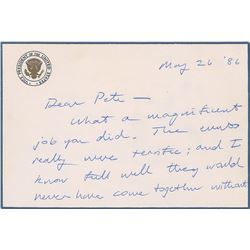 May 26 '86
Dear Pete —
What a magnificent
job you did. The events
really were terrific; and I
know full well they would
never have come together without